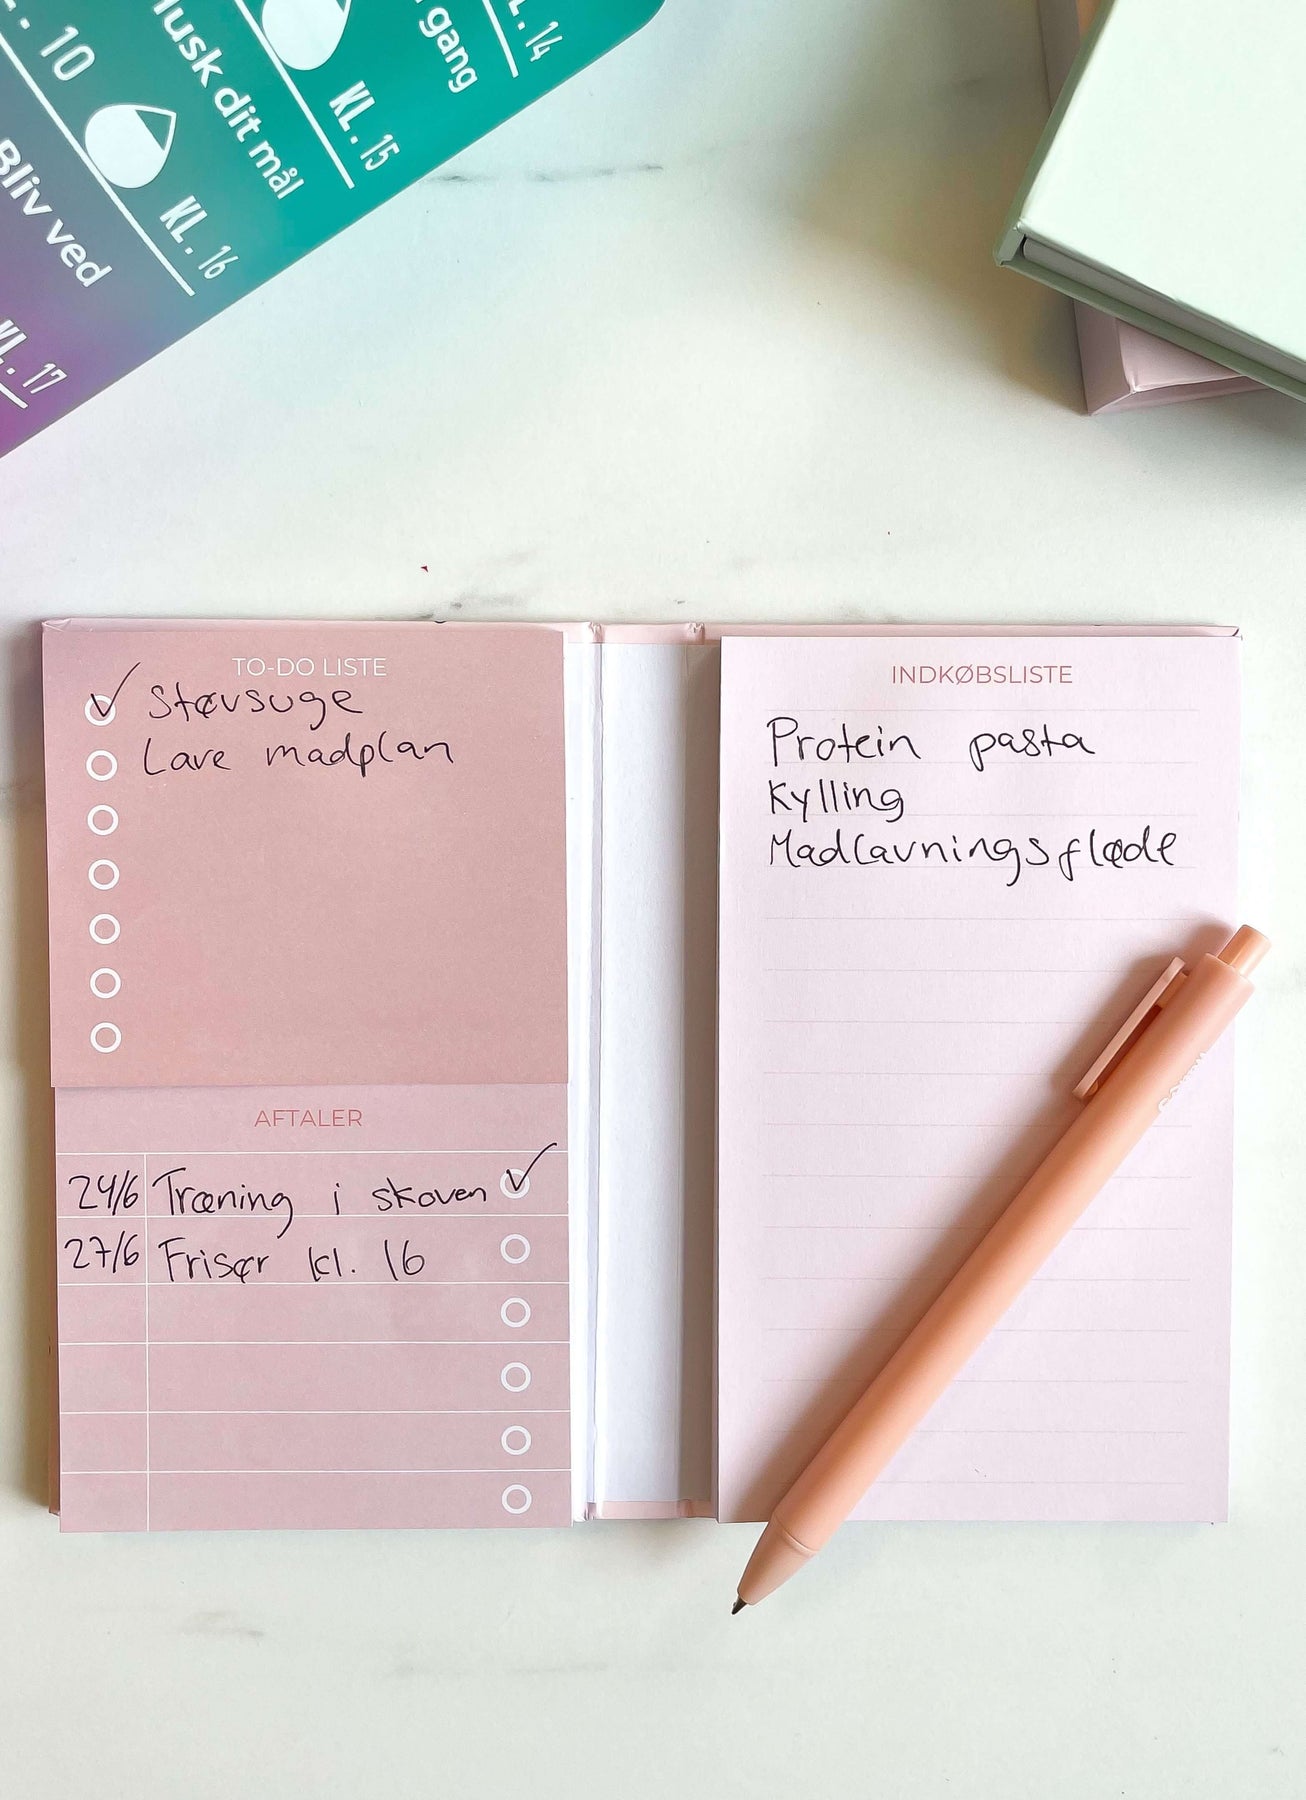 KL. 10
Bliv ved
KL. 17
Husk dit mål
KL. 16
gang
KL. 15
L. 14
TO-DO LISTE
Støvsuge
Lave madplan
AFTALER
24/6 Træning i skoven
27/6 Frisør kl. 16
INDKØBSLISTE
Protein pasta
Kylling
Madlavningsfløde